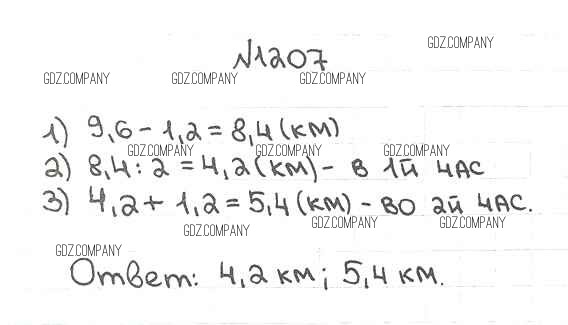 N1207
GDZ.COMPANY
GDZ.COMPANY GDZ.COMPANY GDZ.COMPANY
1) 9,6 - 1,2 = 8,4 (км)
GDZ.COMPANY GDZ.COMPANY GDZ.COMPANY
2) 8,4 : 2 = 4,2 (км) - в 1й час
3) 4,2 + 1,2 = 5,4 (км) - во 2й час.
GDZ.COMPANY GDZ.COMPANY GDZ.COMPANY
GDZ.COMPANY
Ответ: 4,2 км; 5,4 км.